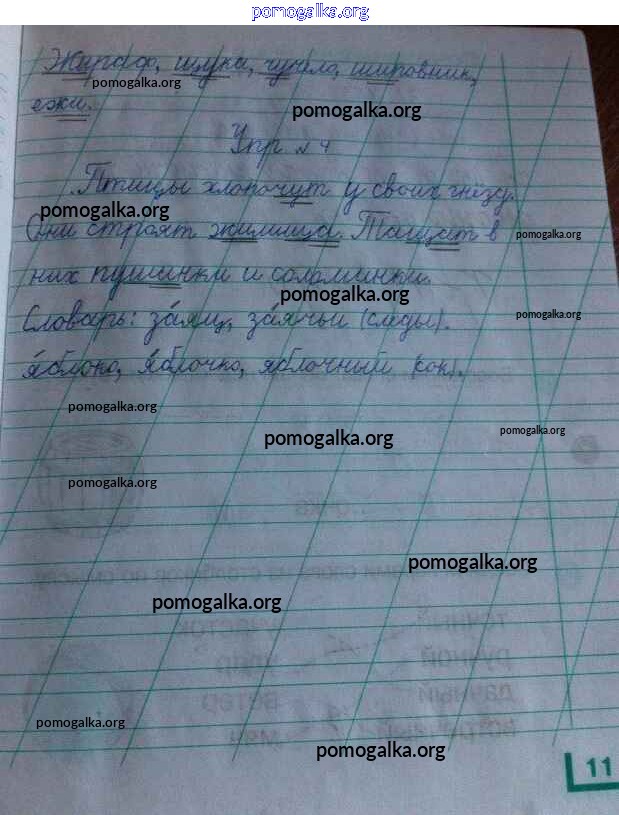 pomogalka.org
Жираф, щука, чучело, шиповник,
pomogalka.org
ежи.
pomogalka.org
Упр № 4
Птицы хлопочут у своих гнёзд.
pomogalka.org
Они строят жилища. Тащат в
pomogalka.org
них пушинки и соломинки.
pomogalka.org
Словарь: за́яц, за́ячьи (следы).
pomogalka.org
я́блоко, я́блочко, яблочный (сок).
pomogalka.org
pomogalka.org
pomogalka.org
pomogalka.org
pomogalka.org
pomogalka.org
pomogalka.org
pomogalka.org
11